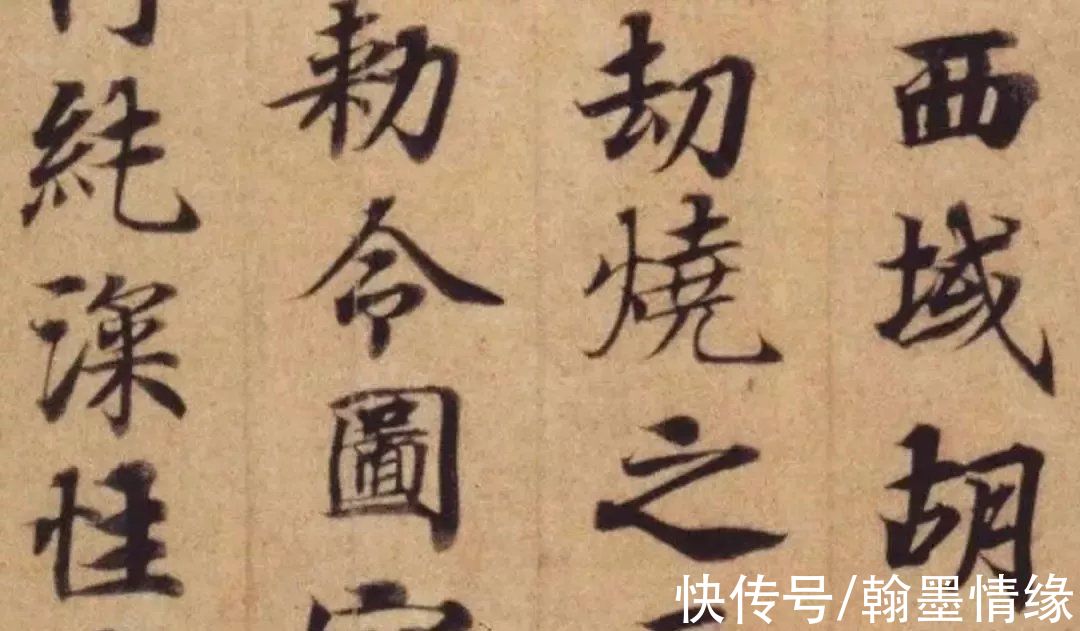 西域胡
劫燒之
勅令圖
純深性
快传号/翰墨情缘